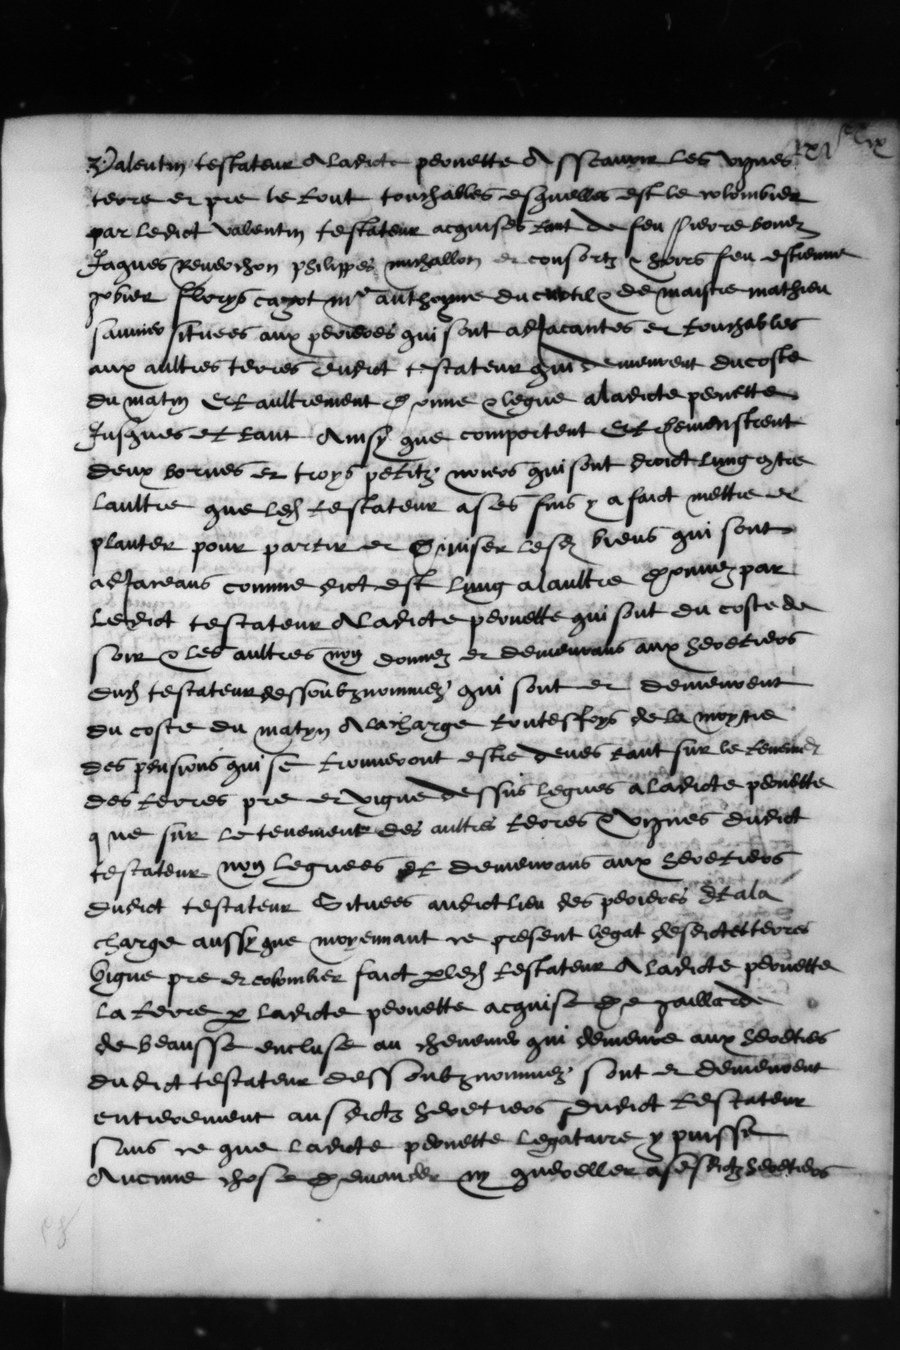 Valentin testateur a ladicte pernette Asscavoir les vignes
terre et pre le tout touchables esquelles est le colombier
par ledict valentin testateur acquises tant de feu pierre bonez
Jaques Reverchon philippes michallon et consortz & hoirs feu estienne
gobier florys cagot mre anthoyne du curtil & de maistre mathieu
saunier situees aux perieres qui sont adjacantes et touchables
aux aultres terres dudict testateur qui demeurent du coste
du matin Et aultrement donne & legue a ladicte pernette
Jusques et tant Ainsy que comportent Et demonstrent
deux bornes et troys petitz noiers qui sont droict lung contre
laultre que led testateur a ses fins y a faict mettre et
planter pour partir et diviser lesd biens qui sont
adjaceans comme dict est lung a laultre donnez par
Ledict testateur A ladicte pernette qui sont du coste de
soir & les aultres non donnez et demeurans aux heretiers
dud testateur dessoubznommez qui sont et demeurent
du coste du matyn A la charge toutesfoys de la moytie
des pensions qui se trouveront estre deues tant sur le tenement
des terres pre et vigne dessus legues a ladicte pernette
que sur le tenement des aultres terres & vignes dudict
testateur non leguees et demeurans aux heretiers
dudict testateur Situees audict lieu des perieres Et a la
charge aussy que moyennant ce present legat desdictes terres
vigne pre et colombier faict par led testateur A ladicte pernette
La terre par ladicte pernette acquise de gaillarde
de beausse encluse au chenemes qui demeure aux heretiers
dudict testateur dessoubznommez sont et demeurent
entierement ausdictz heretiers dudict testateur
sans ce que ladicte pernette legataire y puisse
Aucune chose demander ny quereller a sesdictz heretiers